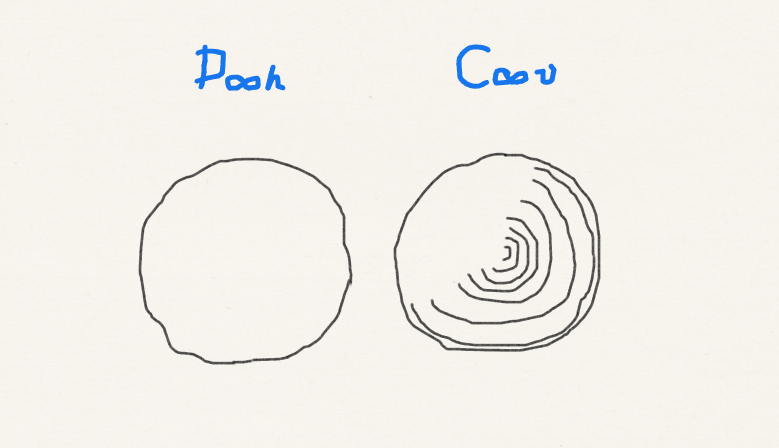 Dooh Coov